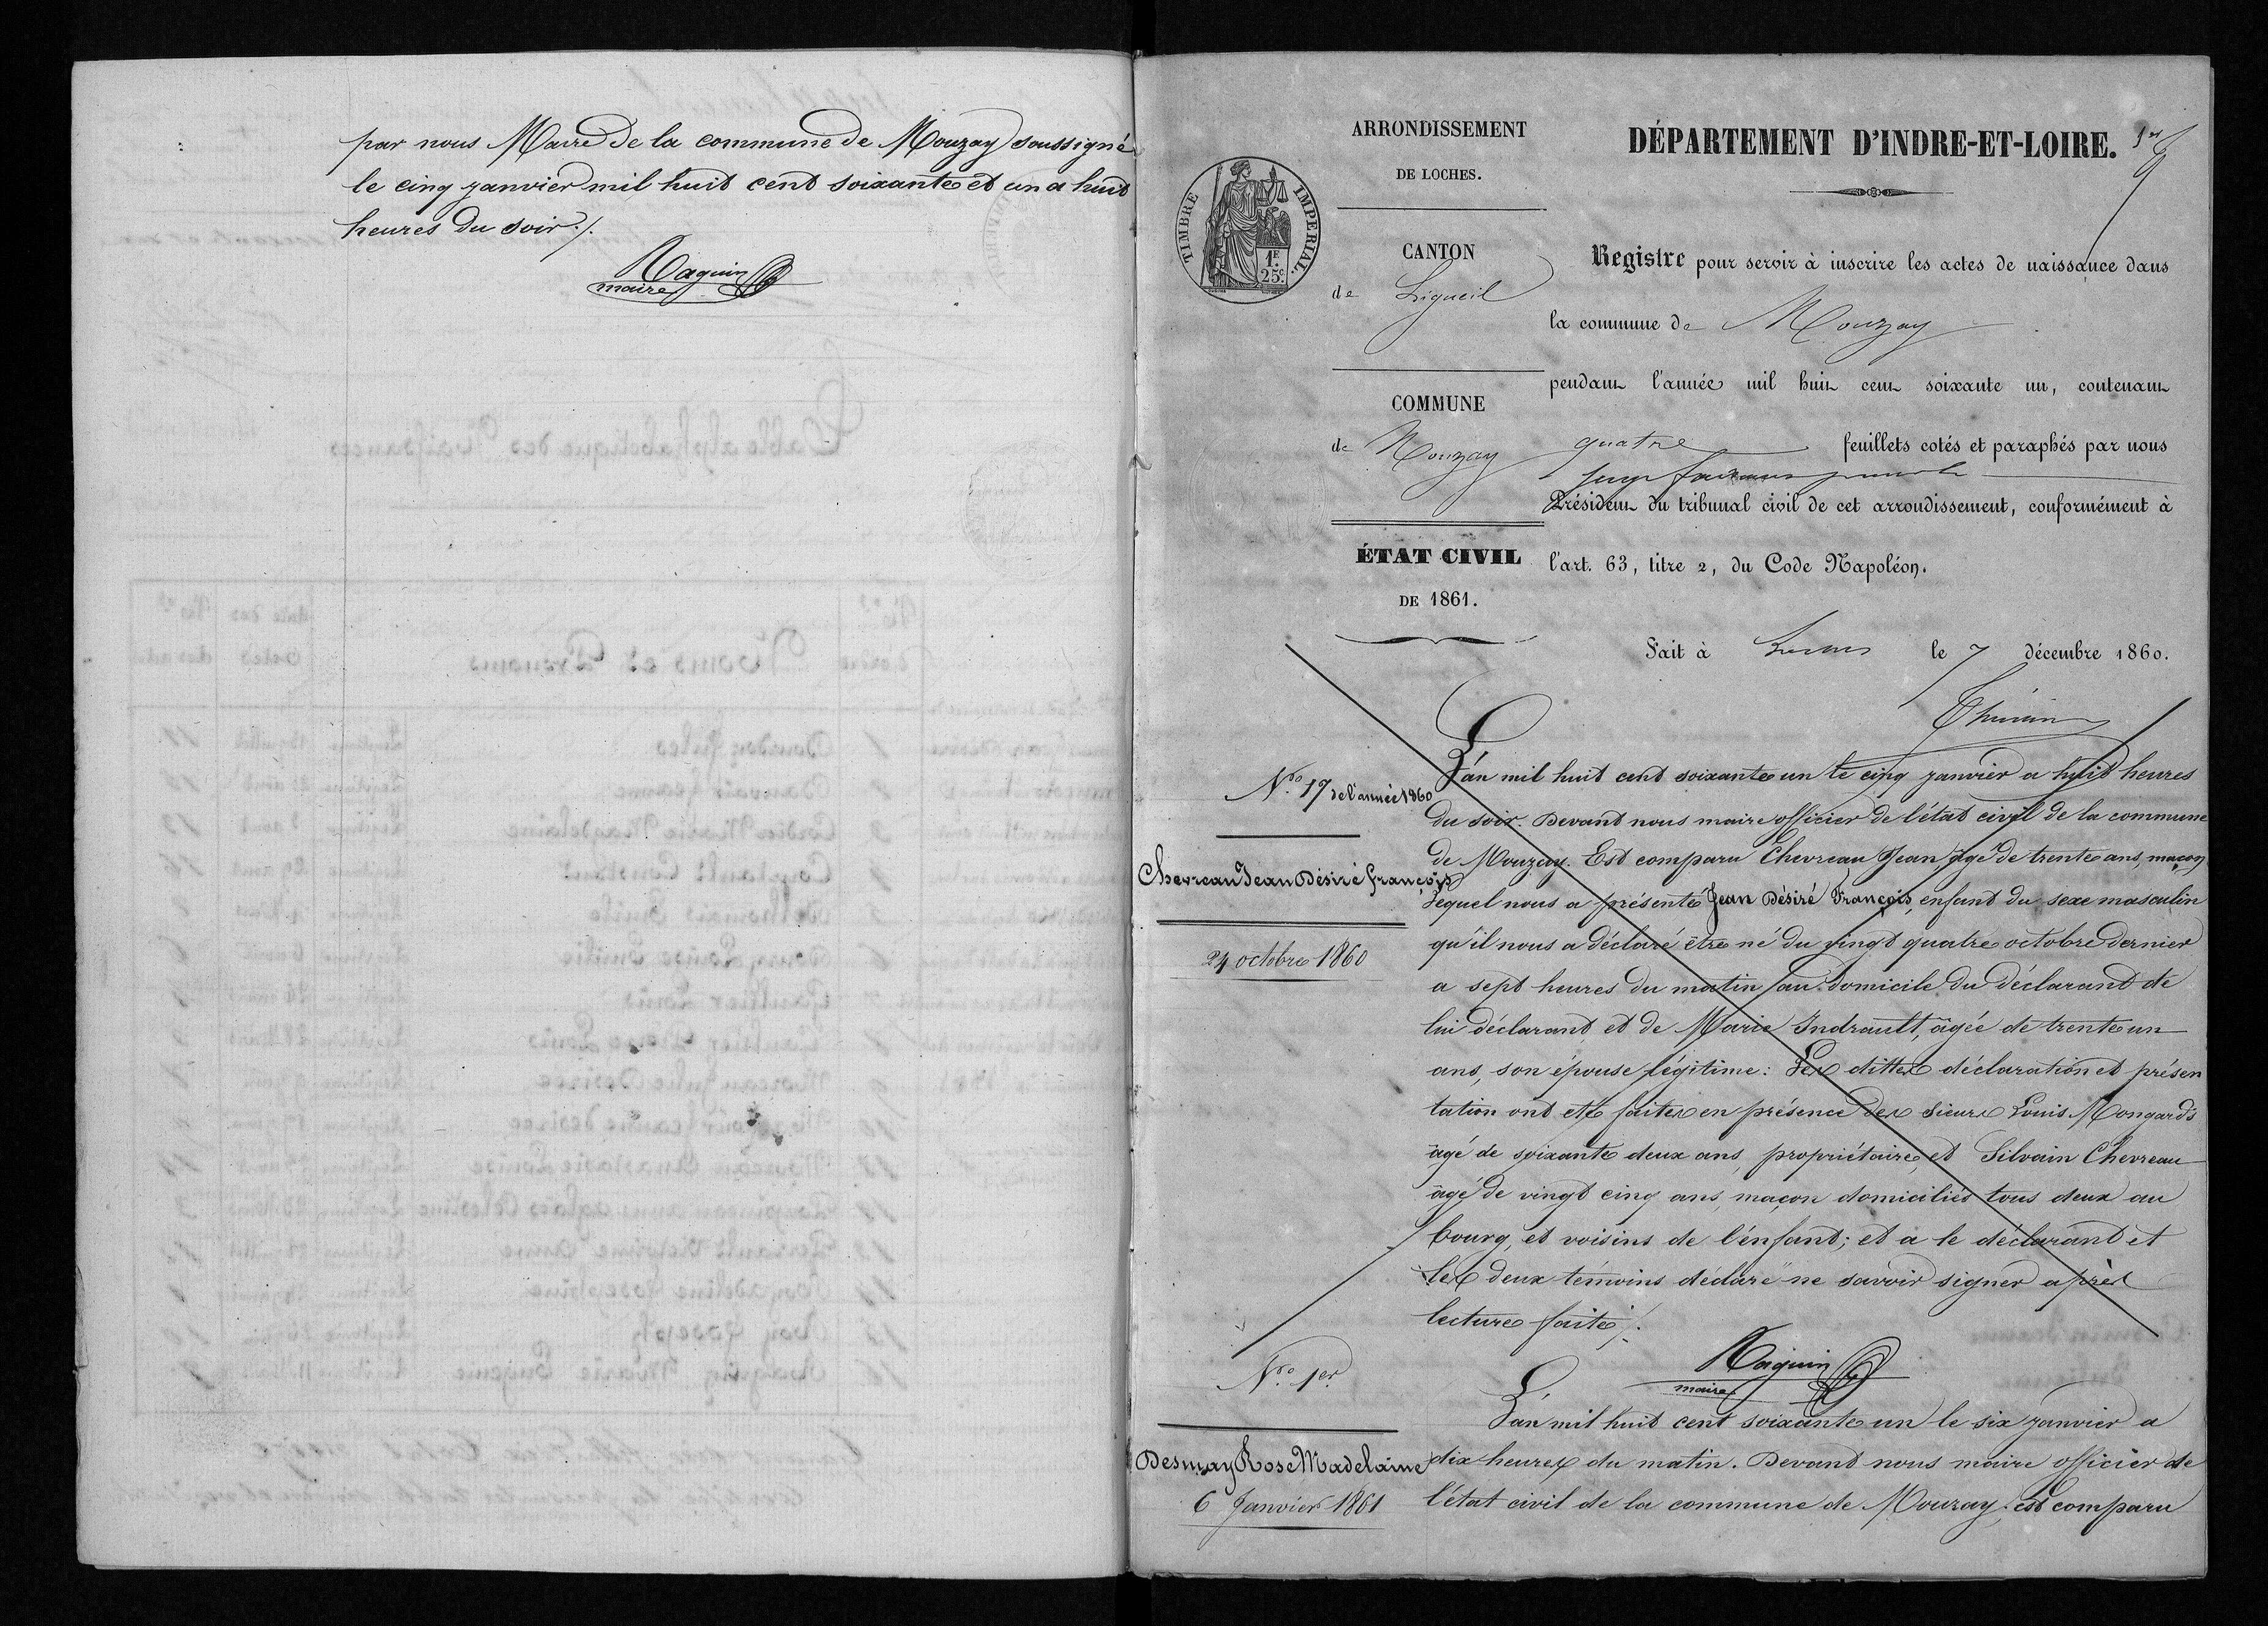 par nous Maire de la commune de Mouzay soussigné
le cinq janvier mil huit cent soixante et un a huit
heures du soir ./.
Naquin
maire
ARRONDISSEMENT
DE LOCHES.
TIMBRE IMPERIAL.
1F. 25c.
CANTON
de Ligueil
COMMUNE
de Mouzay
ÉTAT CIVIL
DE 1861.
DÉPARTEMENT D'INDRE-ET-LOIRE.
1er
Registre pour servir à inscrire les actes de naissance dans
la commune de Mouzay
pendant l'année mil huit cent soixante un, contenant
quatre feuillets cotés et paraphés par nous
juge
Président du tribunal civil de cet arrondissement, conformément à
l'art. 63, titre 2, du Code Napoléon.
Fait à Loches le 7 décembre 1860.
No. 17 de l'année 1860
Chevreau Jean Désiré françois
24 octobre 1860
L'an mil huit cent soixante un le cinq janvier a huit heures
du soir. Devant nous maire officier de l'état civil de la commune
de Mouzay. Est comparu Chevreau Jean âgé de trente ans, maçon
Lequel nous a présenté Jean Désiré François, enfant du sexe masculin
qu'il nous a déclaré être né du vingt quatre octobre dernier
a sept heures du matin, au domicile du déclarant de
lui déclarant et de Marie Indrault, âgée de trente un
ans, son épouse légitime: Les dittes déclaration et présen
tation ont été faites en présence des sieurs Louis Mongards
âgé de soixante deux ans, propriétaire, et Silvain Chevreau
âgé de vingt cinq ans, maçon domiciliés tous deux au
bourg, et voisins de l'enfant; et a le déclarant et
les deux témoins déclaré ne savoir signer après
lecture faite ./.
Naquin
maire
No. 1er
Desmay Rose Madelaine
6 Janvier 1861
L'an mil huit cent soixante un le six janvier a
dix heures du matin. Devant nous maire officier de
l'état civil de la commune de Mouzay, est comparu